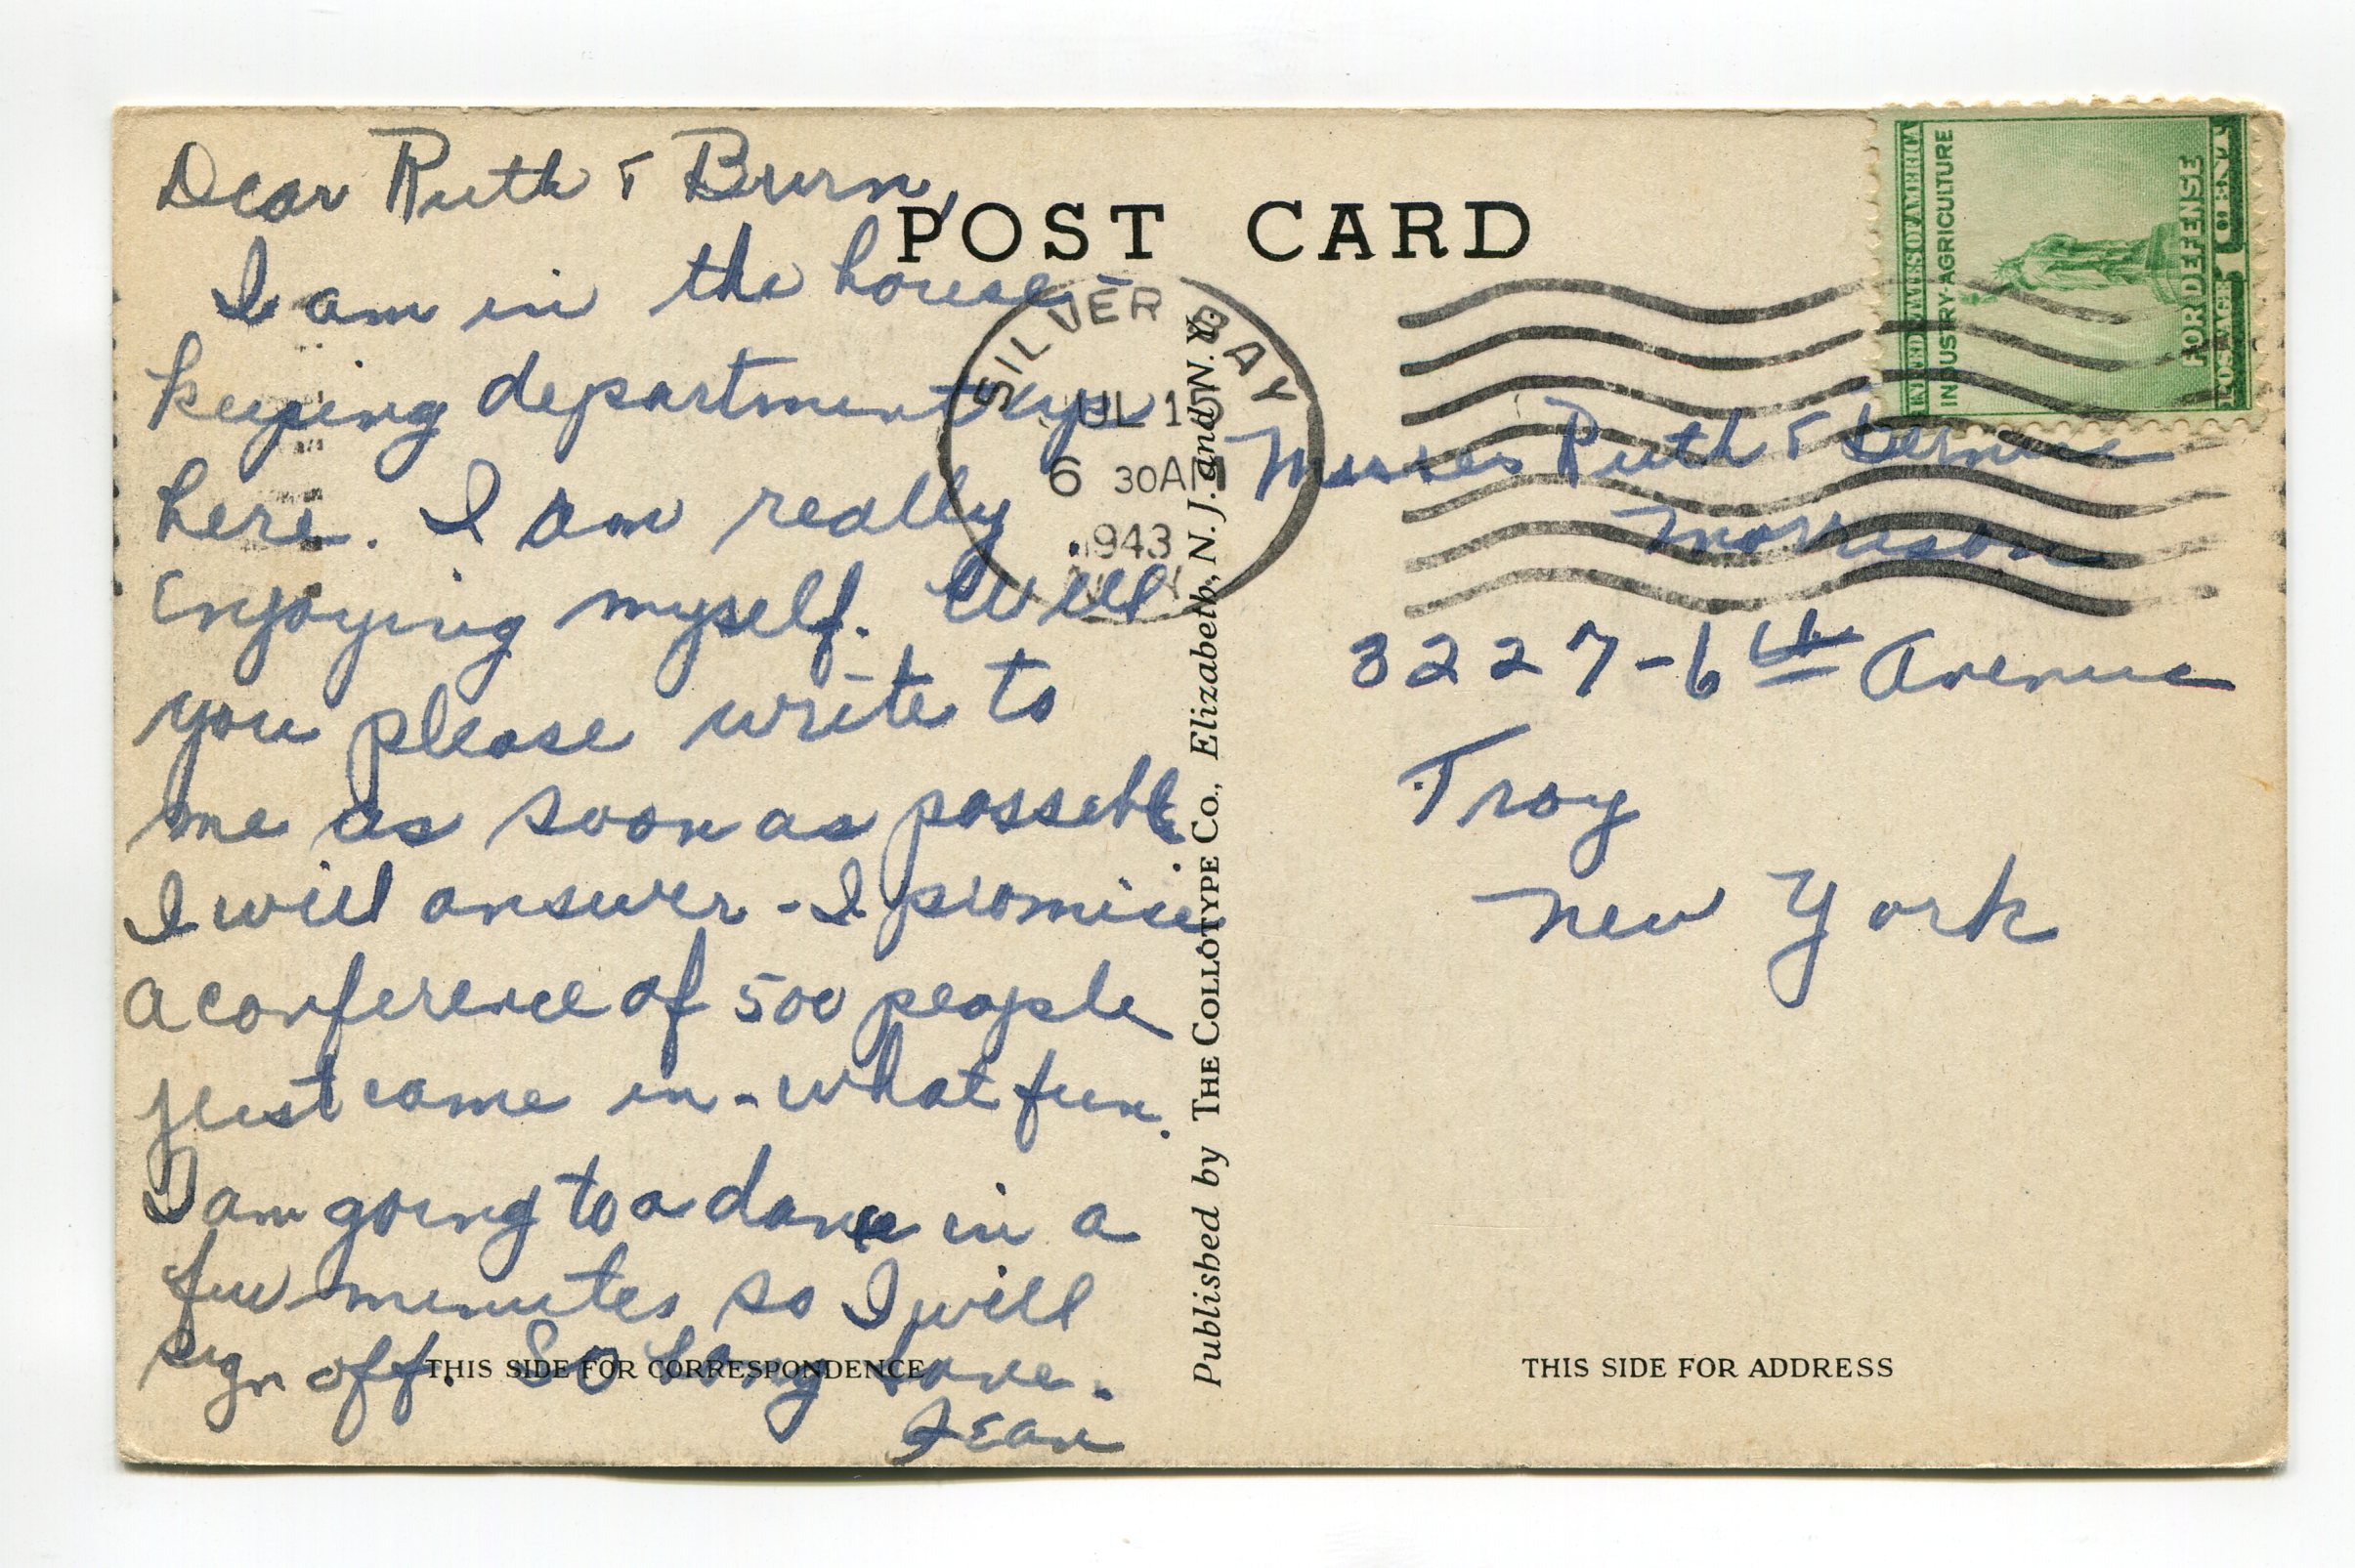 Dear Ruth & Burn,
I am in the house-
keeping department up
here. I am really
Enjoying myself. Will
you please write to
me as soon as possible.
I will answer - I promise
A conference of 500 people
just came in - what fun.
I am going to a dance in a
few minutes so I will
sign off. So Long Love.
Jean
THIS SIDE FOR CORRESPONDENCE
POST CARD
SILVER BAY
JUL 1
6 30AM
1943
N.Y.
Published by THE COLLOTYPE CO., Elizabeth, N. J. and N. Y.
UNITED STATES OF AMERICA
INDUSTRY-AGRICULTURE
FOR DEFENSE
POSTAGE 1 CENT
Misses Ruth & Bernice
Morrison
3227-6th Avenue
Troy
New York
THIS SIDE FOR ADDRESS